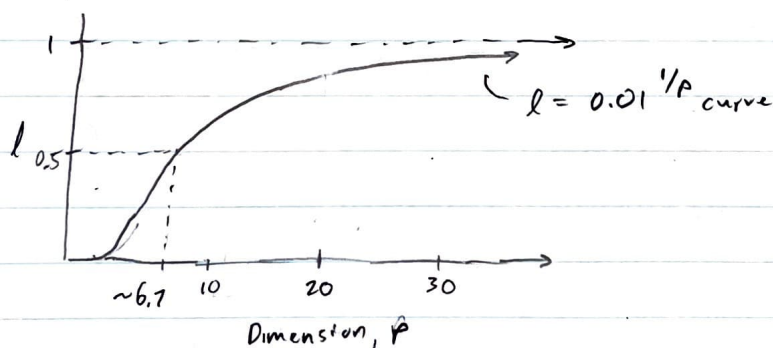 1
l = 0.01^1/p curve
l 0.5
~6.7 10 20 30
Dimension, p